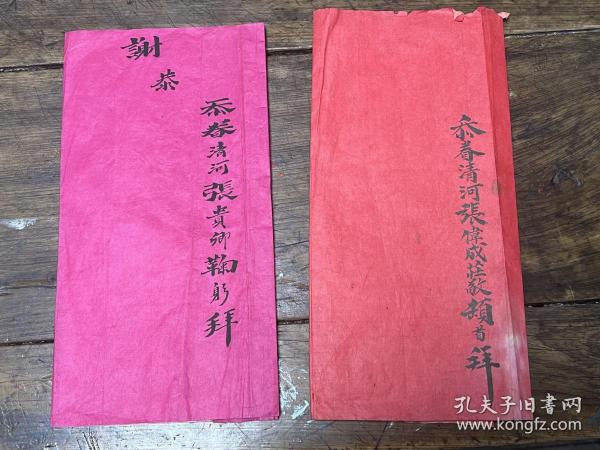 謝
恭
忝眷清河張貴卿鞠躬拜
忝眷清河張偉成莊敬頓首拜
孔夫子旧書网
www.kongfz.com